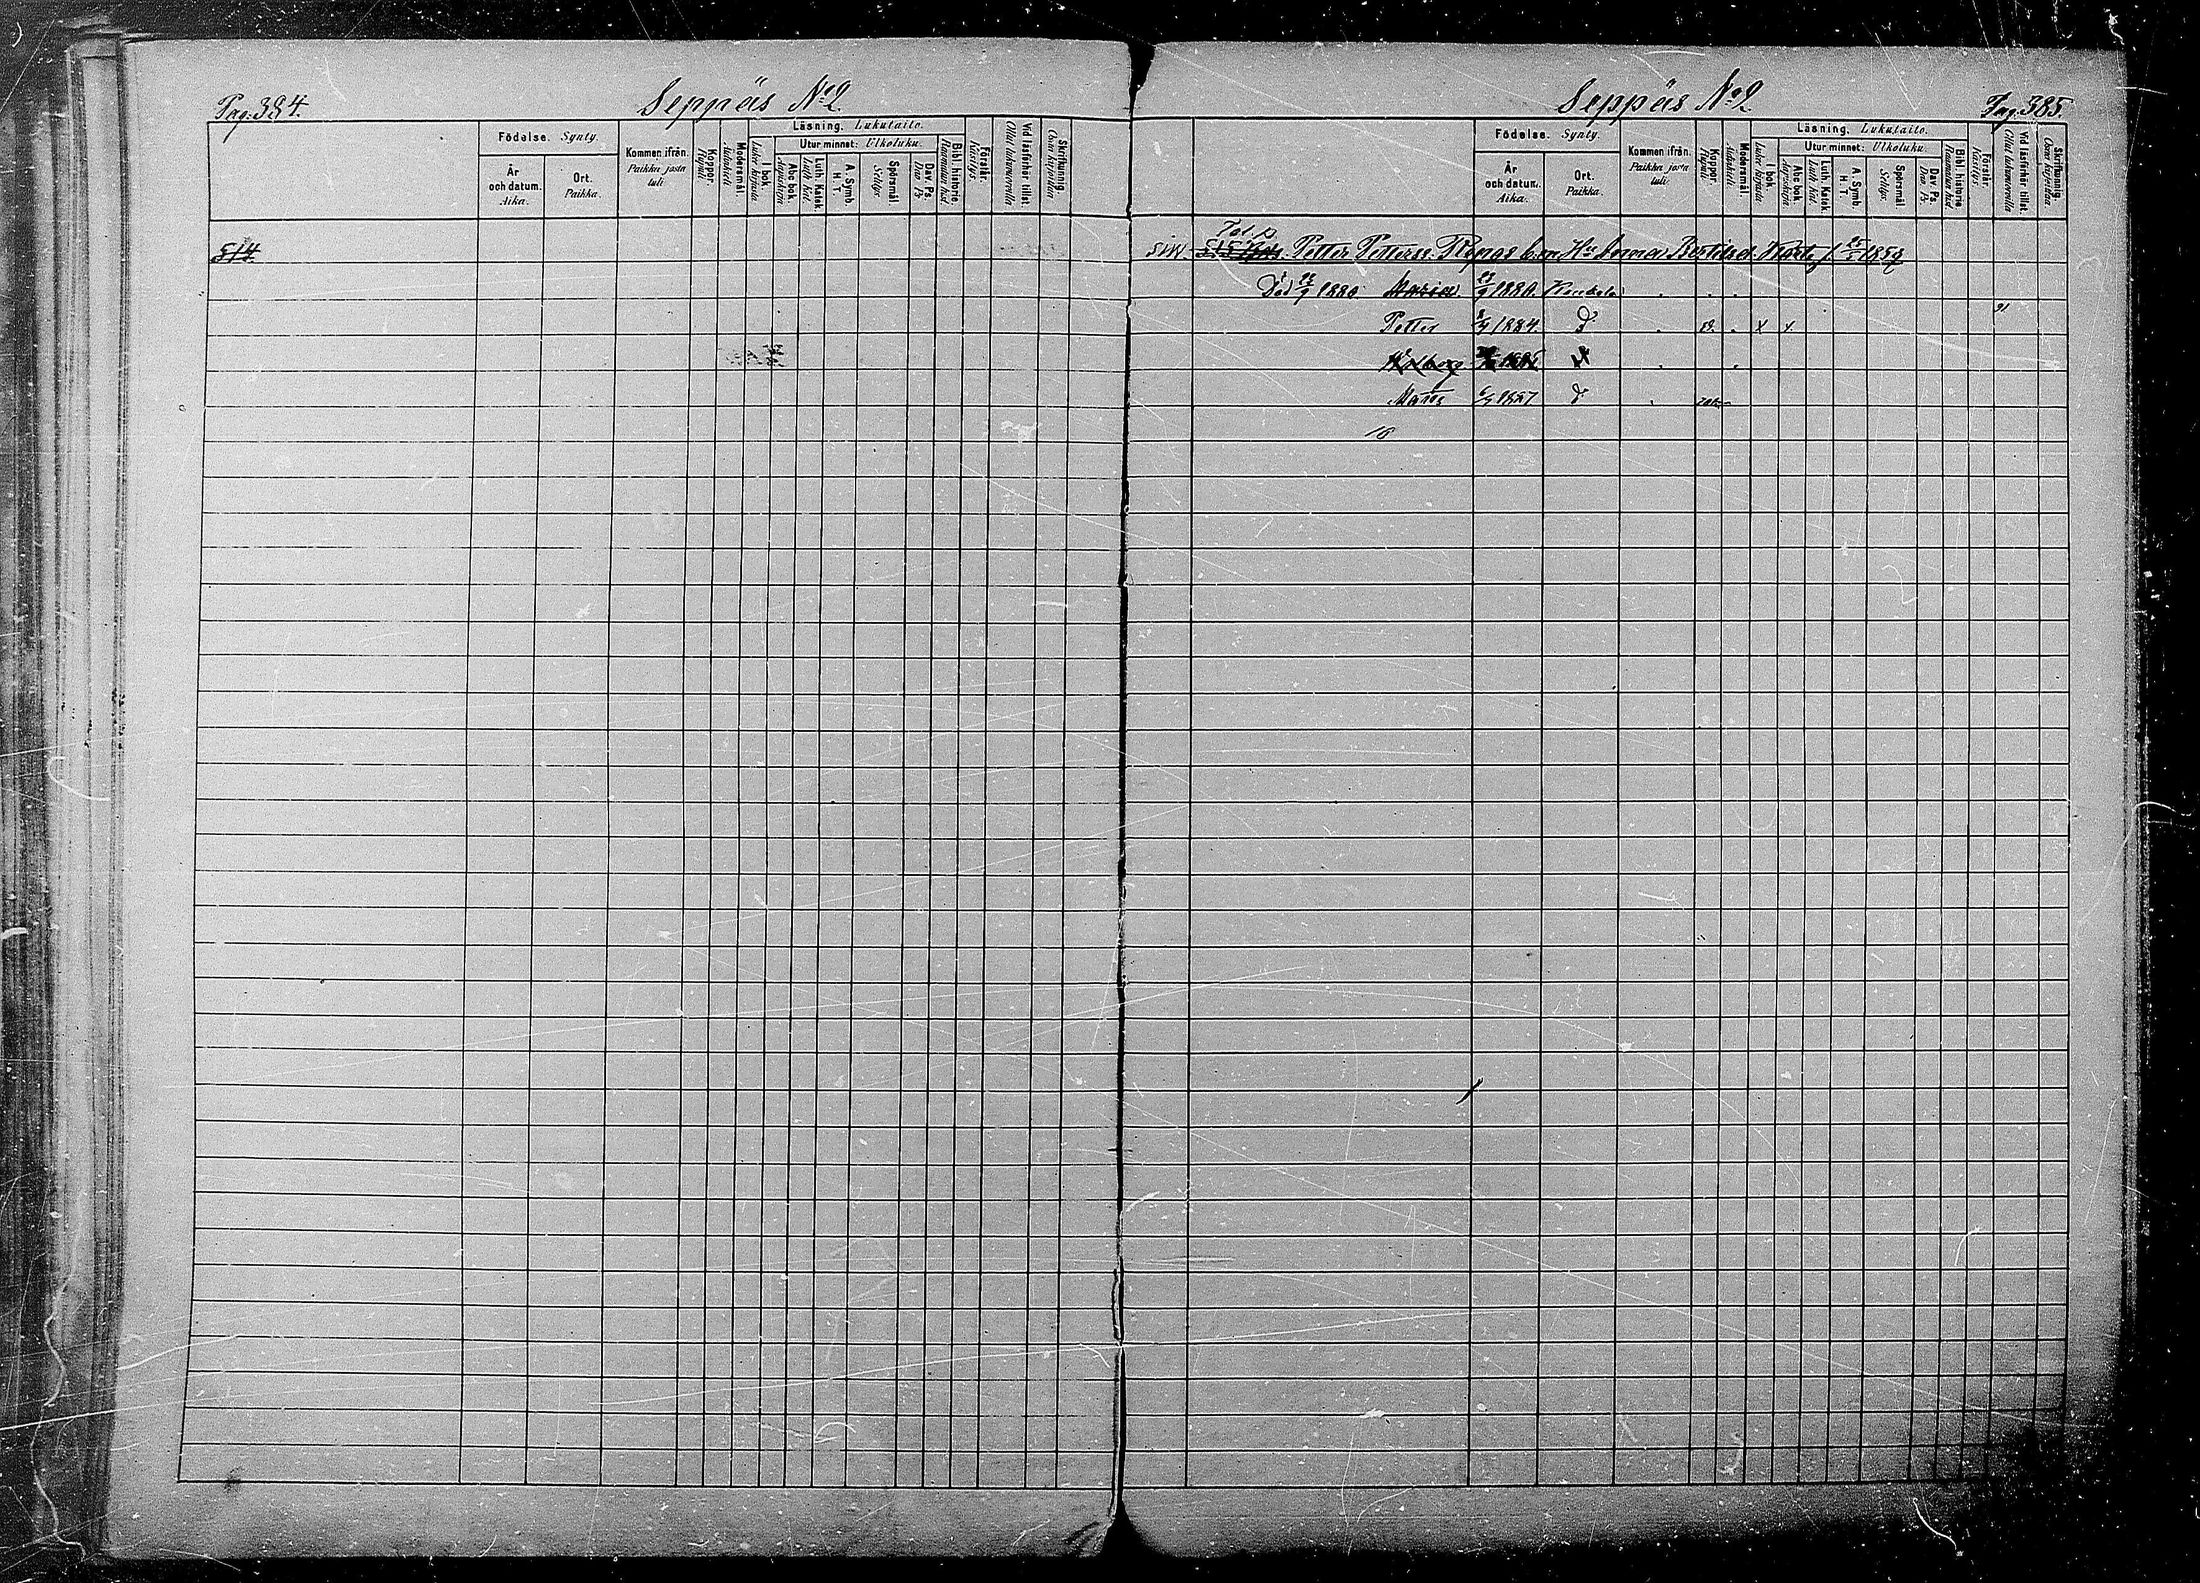 Pag. 384.
Seppäs No 2.
Födelse. Synty.
År och datum. Aika.
Ort. Paikka.
Kommen ifrån. Paikka josta tuli
Koppor. Rupuli.
Modersmål. Äidinkieli
Läsning. Lukutaito.
I bok. Luku kirjasta
Utur minnet: Ulkoluku.
Abc bok. Aapiskirja
Luth. Katek. Luth. kat.
A. Symb. H. T.
Spörsmål Selitys.
Dav. Ps. Dav. Ps.
Bibl. historie. Raamatun hist.
Förstår. Käsitys.
Vid läsförhör tillst. Ollut lukumerreilla
Skrifkunnig. Osaa kirjoittaa
514.
Seppäs No 2.
Pag. 385.
Födelse. Synty.
År och datum. Aika.
Ort. Paikka.
Kommen ifrån. Paikka josta tuli.
Koppor. Rupuli.
Modersmål. Äidinkieli
Läsning. Lukutaito.
I bok. Luku kirjasta
Utur minnet: Ulkoluku.
Abc bok. Aapiskirja
Luth. Katek. Luth. kat.
A. Symb. H. T.
Spörsmål Selitys.
Dav. Ps. Dav. Ps.
Bibl. historie Raamatun hist
Förstår. Käsitys.
Vid läsförhör tillst.
Skrifkunnig. Osaa kirjoittaa
515 Petter Petterss. Anna 1859
Död 1880 Maria 1880.
91
Petter 1884.
1885
Matts 1887
10